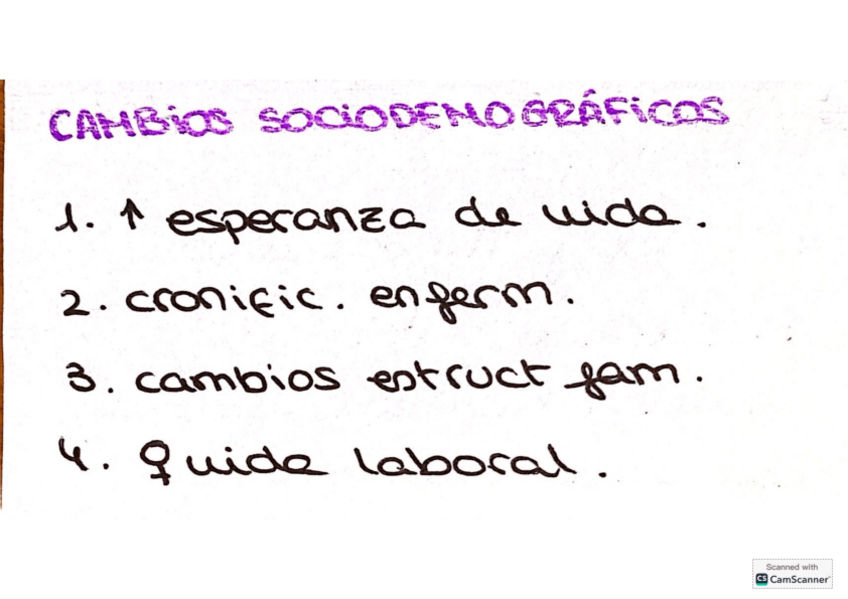 CAMBiOS SOCiODEMOGRÁFiCOS
1. ↑ esperanza de vida.
2. cronific. enferm.
3. cambios estruct fam.
4. ♀ vida laboral.
Scanned with
CS CamScanner